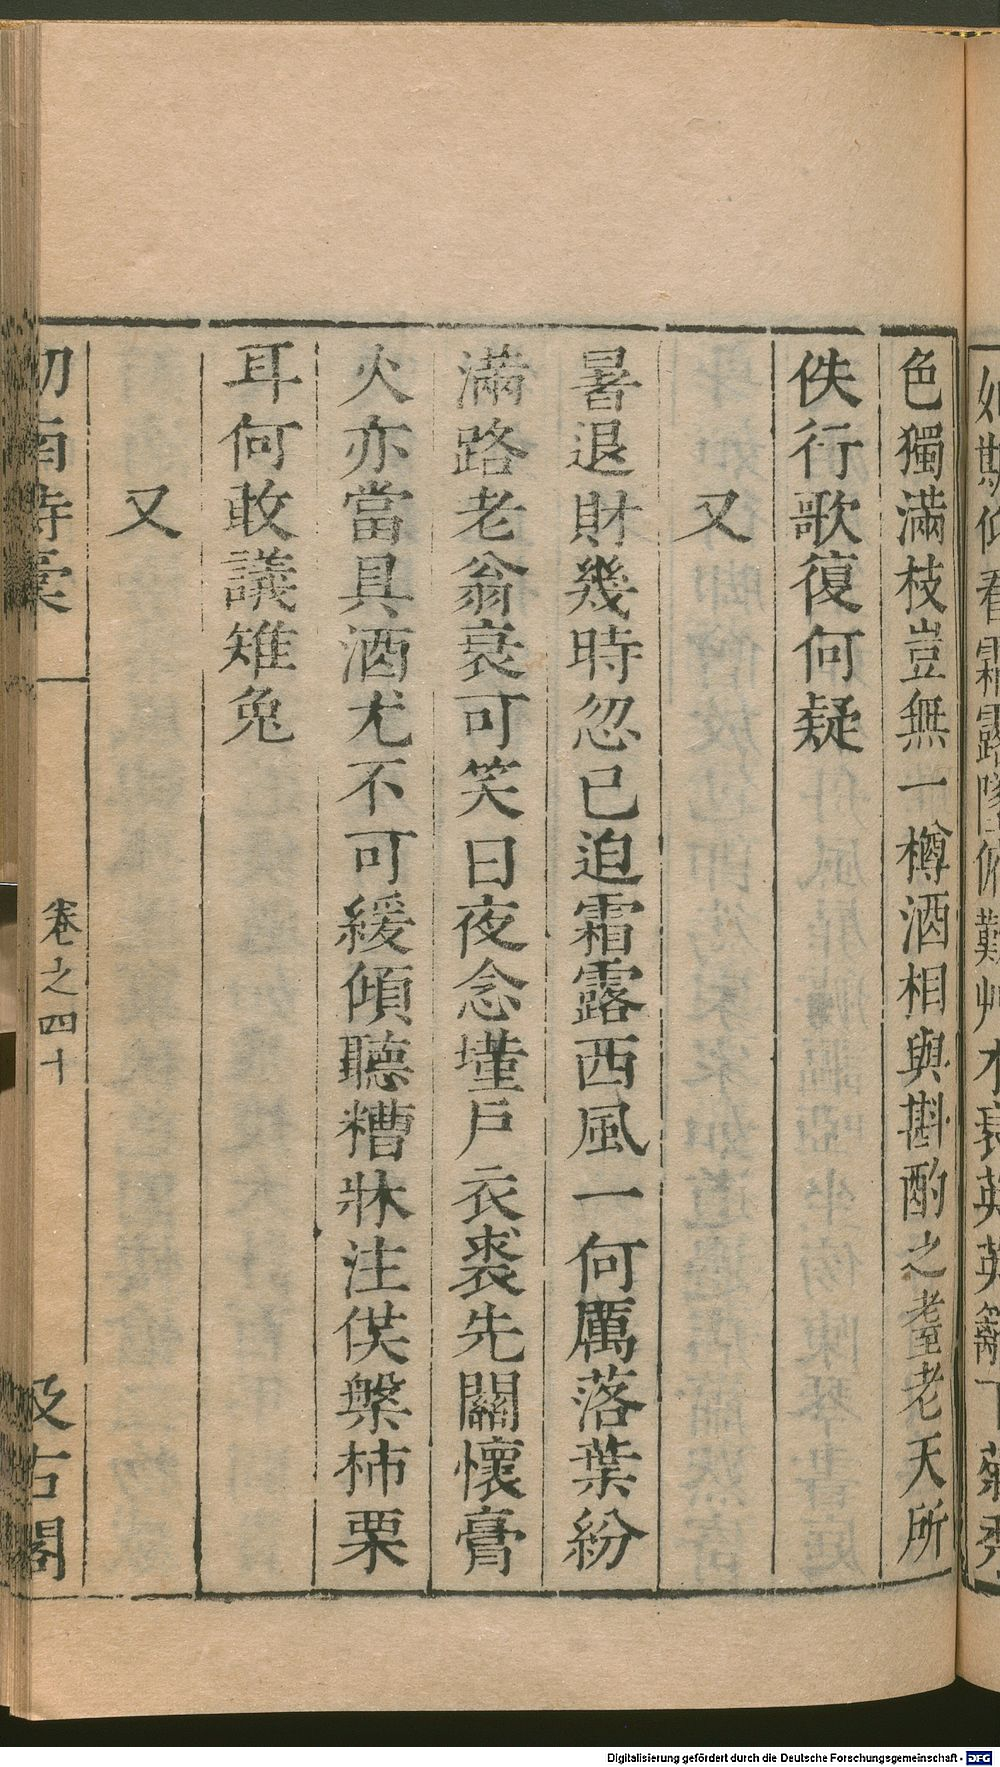 如斯仰看霜露墜俯歎艸木衰英英籬下菊秀
色獨滿枝豈無一樽酒相與斟酌之耋老天所
佚行歌復何疑
又
暑退財幾時忽已迫霜露西風一何厲落葉紛
滿路老翁衰可笑日夜念墐戶衣裘先關懷膏
火亦當具酒尤不可緩傾聽糟牀注僎槃柿栗
耳何敢議雉兔
又
劒南詩稾
卷之四十
汲古閣
Digitalisierung gefördert durch die Deutsche Forschungsgemeinschaft - DFG